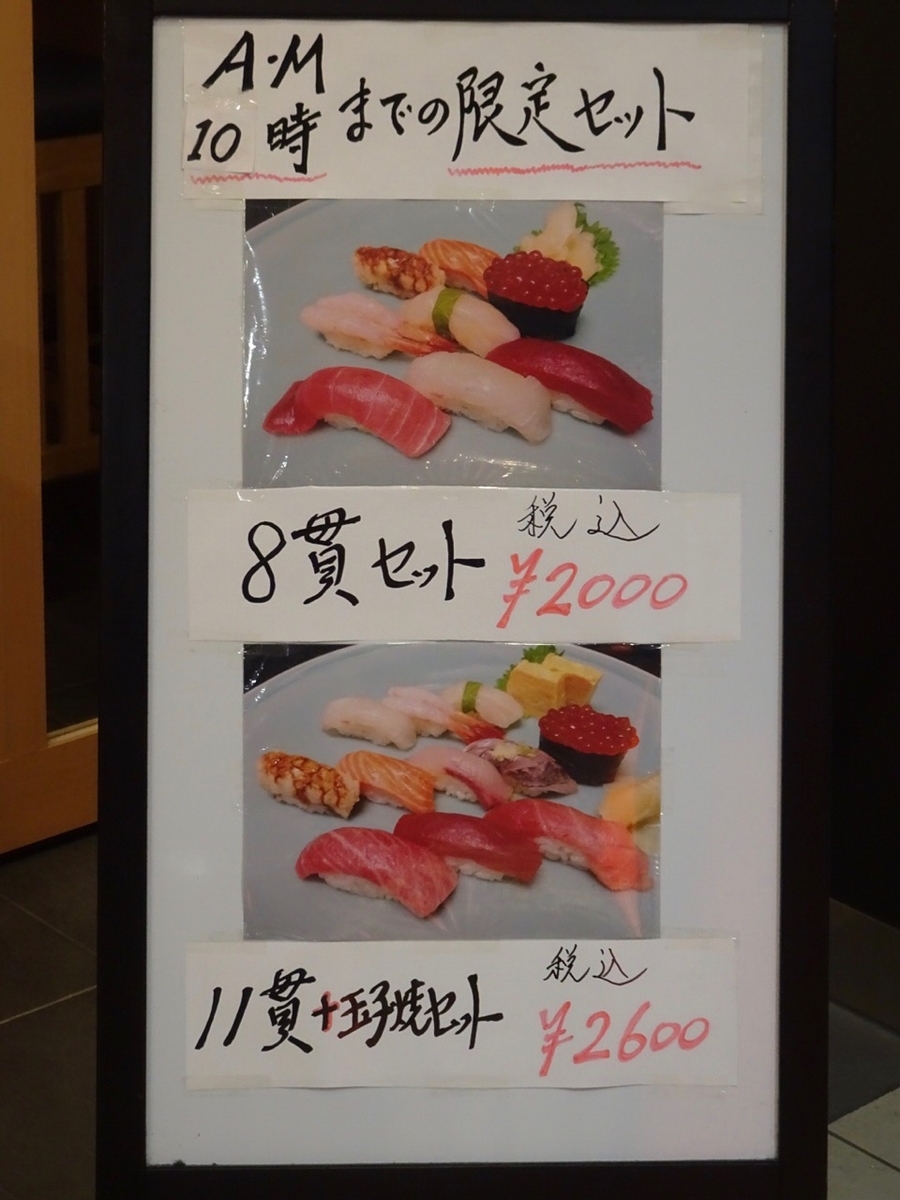 A・M
10時までの限定セット
8貫セット
税込
¥2000
11貫+玉子焼セット
税込
¥2600